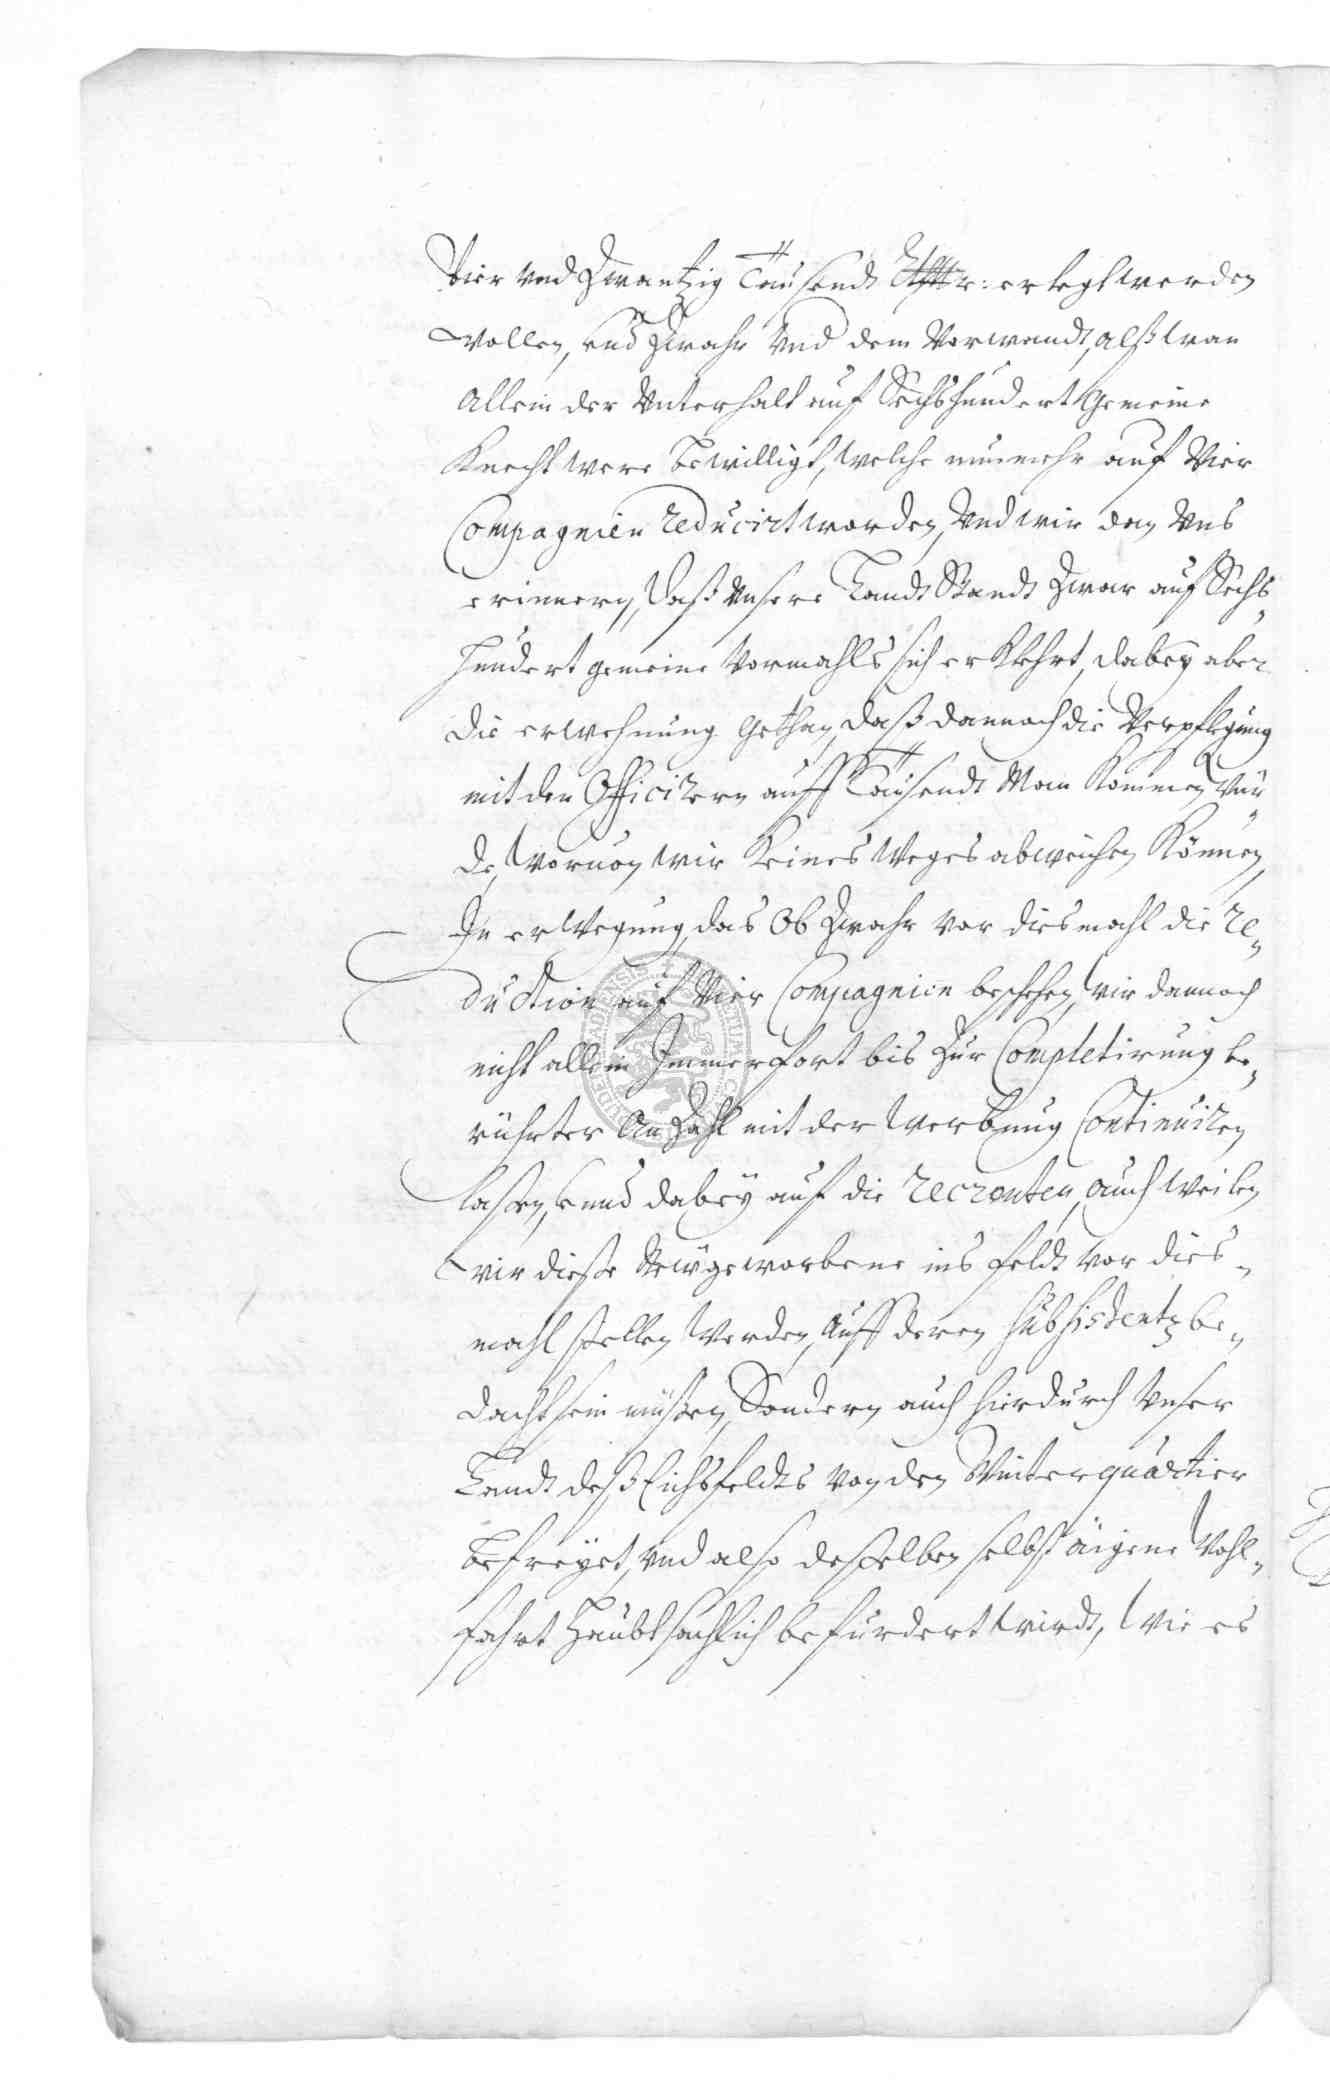 Vier vnd Zwantzig Tausendt Rthlr: erlegt werden
wollen, vnd Zwahr vnd dem Vorwandt, alß wan
Allein der Vnterhalt auf Sechshundert Gemeine
Knecht were bewilligt, welche nunmehr auf Vier
Compagnien reducirt worden, Vnd wir den Vns
erinnern, daß Vnsere Landt Standt Zwar auf Sechs„
hundert gemeine Vormahls sich erklehrt, dabey aber
die erwehnung gethan, daß dannoch die Verpflegung
mit den Officirern auff Tausendt Man kommen wür„
de, wouon wir keines Weges abweichen können,
In erwegung, das Ob Zwahr vor diesmahl die re„
duction auf Vier Compagnien beschehen, wir dannoch
nicht allein Immerfort bis zur Completirung be„
rührter Anzahl mit der Werbung Continuiren
laßen, vnnd dabey auf die recrouten, auch weilen
wir dieße Newgeworbene ins feldt vor dies„
mahl stellen werden, Auff deren subsistentz be„
dacht sein müßen, Sondern auch hierdurch Vnser
Landt deß Eichsfeldts von den Winterquartier
befreyet, vnd also deßelben selbst äigene Wohl„
fahrt Haubtsachlich befurdert wirdt, Wie es